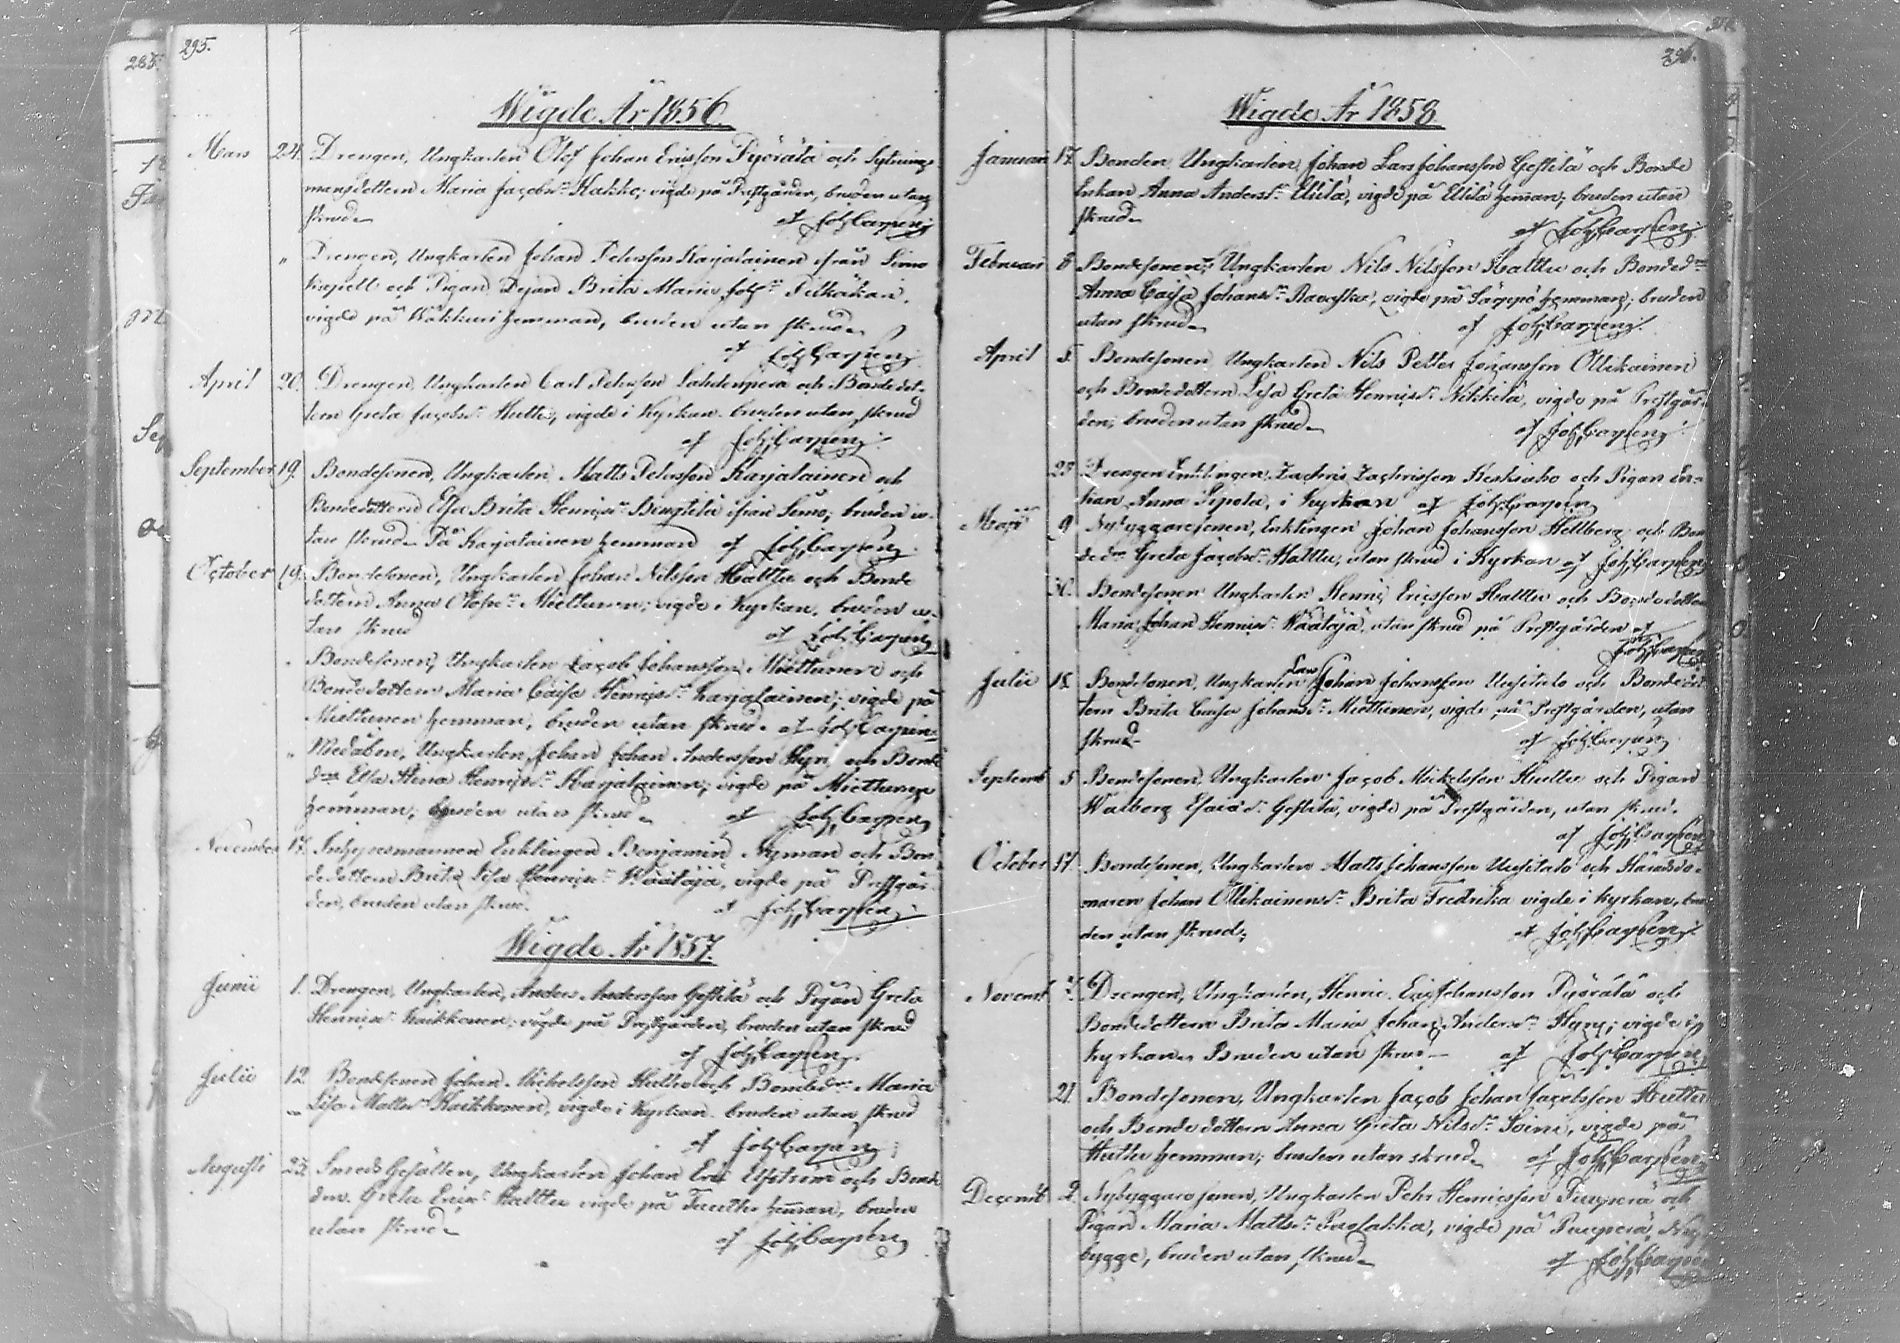 295.
Wigde År 1856.
Mars 24. Drengen, Ungkarlen Olof Johan Ericsson Pyörälä och Sytnings-
mansdottern Maria Jacobsdr Kakko, vigde på Prestgården, bruden utan
skrud af Joh Carpén
" Drengen, Ungkarlen Johan Petersson Karjalainen ifrån Simo
kapell och Pigan Brita Maria
vigde på hemman, bruden utan skrud
af Joh Carpén
April 20. Drengen, Ungkarlen Carl Petersson Lahdenperä och Bondedot-
tern Greta Jacobsdr Huttu, vigde i Kyrkan bruden utan skrud
af Joh Carpén
September 19. Bondesonen, Ungkarlen Matts Petersson Karjalainen och
Bondedottern Elsa Brita Henricsdr ifrån Simo; bruden u-
tan skrud På Karjalainen hemman af Joh Carpén
October 19. Bondesonen, Ungkarlen Johan Nilsson Hattu och Bonde
dottern Anna Olofsdr Miettunen; vigde i Kyrkan, bruden u-
tan skrud af Joh Carpén
" Bondesonen, Ungkarlen Jacob Johansson Miettunen och
Bondedottern Maria Caisa Henricsdr Karjalainen; vigde på
Miettunen hemman; bruden utan skrud. af Joh Carpén
" Ungkarlen Johan Johan Andersson Hyry och Bonde
dr Elsa Stina Henricsdr Karjalainen; vigde på Miettunen
hemman; bruden utan skrud af Joh Carpén
November 17. Inhysesmannen Enklingen Benjamin Nyman och Bon-
dedottern Brita Lisa Henricsdr Wäätäjä, vigde på Prestgår-
den, bruden utan skrud. af Joh Carpén
Wigde År 1857.
Junii 1. Drengen, Ungkarlen, Anders Andersson Gestilä och Pigan Greta
Henricsdr Kaikkonen; vigde på Prestgården, bruden utan skrud
af Joh Carpén
Julii 12. Bondesonen Johan Michelsson Huttu och Bondedr Maria
Lisa Mattsdr Kaikkonen, vigde i Kyrkan bruden utan skrud
af Joh Carpén
Augusti 23. Smeds Gesällen, Ungkarlen Johan Eric och Bonde
dr Greta Ericsdr Hattu vigde på hemman, bruden
utan skrud af Joh Carpén
296.
Wigde År 1858
Januari 17. Bonden Ungkarlen Johan Lars Johansson Gestilä och Bonde
Enkan Anna Andersdr Ulilä, vigde på Ulilä hemman; bruden utan
skrud af Joh Carpén
Februari 8 Bondesonen, Ungkarlen Nils Nilsson Hattu och Bondedr
Anna Caisa Johansdr vigde på hemman; bruden
utan skrud af Joh Carpén
April 5. Bondesonen Ungkarlen Nils Petter Johansson Ollikainen
och Bondedottern Lisa Greta Henricsdr Nikkilä, vigde på Prestgår-
den; bruden utan skrud af Joh Carpén
25 Drengen Enklingen, Zachris Zachrisson och Pigan En-
kan Anna Sipola, i Kyrkan af Joh Carpén
Maji 9 Nybyggaresonen, Enklingen Johan Johansson Hellberg och Bon
dedr Greta Jacobsdr Hattu, utan skrud i Kyrkan af Joh Carpén
30. Bondesonen Ungkarlen Henric Ericsson Hattu och Bondedottern
Maria Johan Henricsdr Wäätäjä, utan skrud på Prestgården af
Joh Carpén
Julii 18. Bondesonen, Ungkarlen Lars Johan Johansson Uusitalo och Bondedot
tern Brita Caisa Johansdr Miettunen, vigde på Prestgården, utan
skrud af Joh Carpén
Septemb 5 Bondesonen, Ungkarlen Jacob Mickelsson Huttu och Pigan
Walborg Esaiædr Gestilä, vigde på Prestgården, utan skrud.
af Joh Carpén
October 17. Bondesonen, Ungkarlen Matts Johansson Uusitalo och Häradsdo-
maren Johan Ollikainensdr Brita Fredrika vigde i kyrkan, bru
den utan skrud; af Joh Carpén
Novemb 7. Drengen, Ungkarlen, Henric Eric Johansson Pyörälä och
Bondedottern Brita Maria Johan Andersdr Hyry; vigde i
Kyrkan. Bruden utan skrud — af Joh Carpén
21 Bondesonen, Ungkarlen Jacob Johan Jacobsson Huttu
och Bondedottern Anna Greta Nilsdr Soini, vigde på
Huttu hemman; bruden utan skrud af Joh Carpén
Decemb 2. Nybyggaresonen, Ungkarlen Petr Henricsson Puuperä och
Pigan Maria Mattsdr vigde på Puuperä Ny-
bygge, bruden utan skrud af Joh Carpén